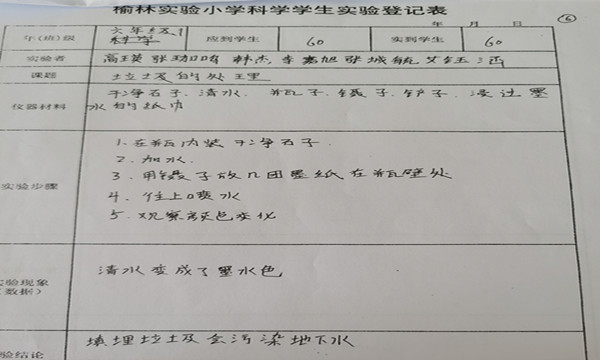 榆林实验小学科学学生实验登记表
⑥
年 月 日
年(班)级 六年级1 科学 应到学生 60 实到学生 60
实验者 高 张 林杰 李嘉旭 张城
课题 垃圾的处理
仪器材料 干净石子、清水、瓶子、镊子、铲子、浸过墨
水的纸巾
1. 在瓶内装干净石子
2. 加水.
3. 用镊子放几团墨纸在瓶壁处
实验步骤
4. 往上喷水
5. 观察颜色变化
实验现象 清水变成了墨水色
(数据)
实验结论 填埋垃圾会污染地下水